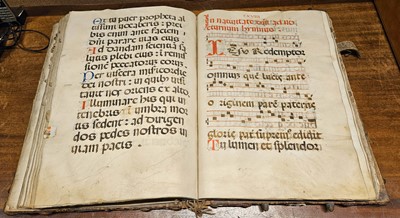 Et tu puer propheta al
tissimi vocaberis: prei
bis enim ante faciem
dñi parare vias eius
Ad dandam scientiã sa
lutis plebi eius: in remis
sionẽ peccatorum eorum.
Per viscera misericordie
dei nostri: in quibus visi
tavit nos oriens ex alto.
Illuminare his qui in
tenebris et in umbra mor
tis sedent: ad dirigen
dos pedes nostros in
viam pacis.
In nativitate
hymnus
Iesu Redemptor
omnium quẽ lucis ante
originem parem paterne
glorie pat supremus edidit
Tu lumen et splendor